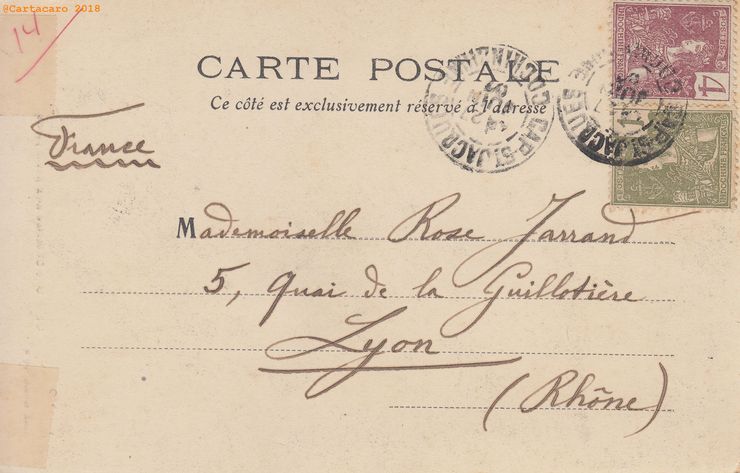 @Cartacaro 2018
14
CARTE POSTALE
Ce côté est exclusivement réservé à l'adresse
France
Mademoiselle Rose Jarrand
5, Quai de la Guillotière
Lyon
(Rhône)
CAP-ST JACQUES
COCHINCHINE
CAP-ST JACQUES
4